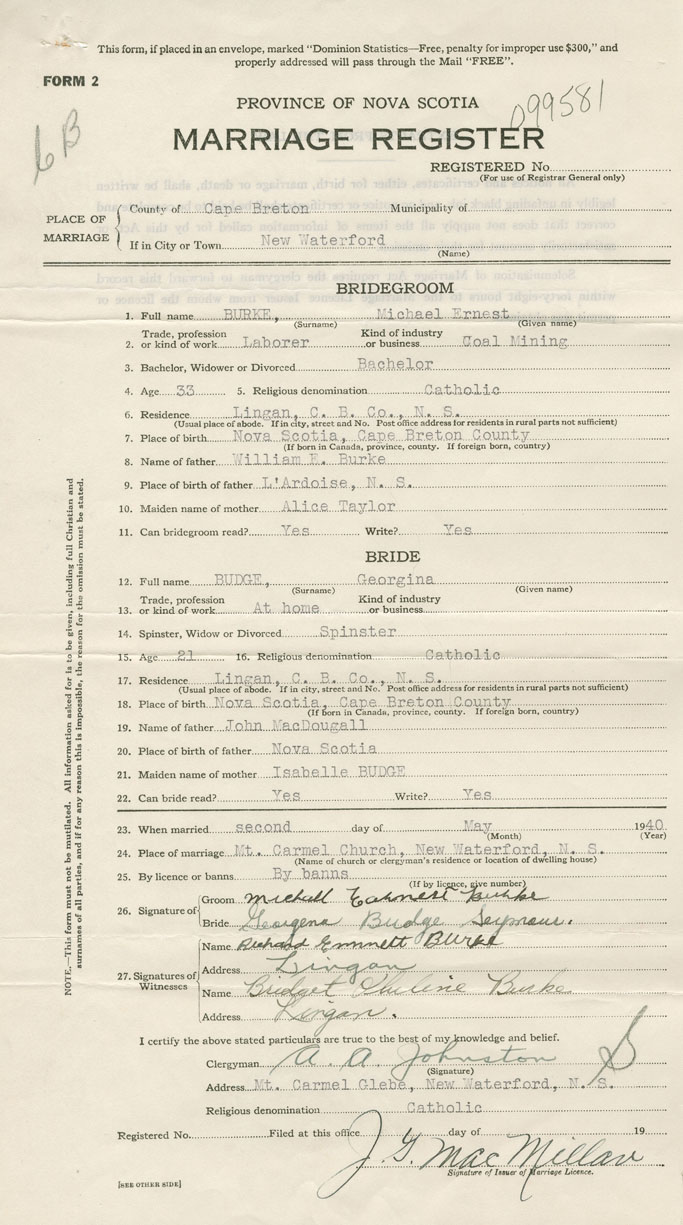 This form, if placed in an envelope, marked "Dominion Statistics—Free, penalty for improper use $300," and
properly addressed will pass through the Mail "FREE".
FORM 2
6B
PROVINCE OF NOVA SCOTIA
099581
MARRIAGE REGISTER
REGISTERED No.
(For use of Registrar General only)
PLACE OF MARRIAGE
County of Cape Breton Municipality of
If in City or Town New Waterford
(Name)
BRIDEGROOM
1. Full name BURKE, Michael Ernest
(Surname) (Given name)
Trade, profession Kind of industry
2. or kind of work Laborer or business Coal Mining
3. Bachelor, Widower or Divorced Bachelor
4. Age 33 5. Religious denomination Catholic
6. Residence Lingan, C. B. Co., N. S.
(Usual place of abode. If in city, street and No. Post office address for residents in rural parts not sufficient)
7. Place of birth Nova Scotia, Cape Breton County
(If born in Canada, province, county. If foreign born, country)
8. Name of father William E. Burke
9. Place of birth of father L'Ardoise, N. S.
10. Maiden name of mother Alice Taylor
11. Can bridegroom read? Yes Write? Yes
BRIDE
12. Full name BUDGE, Georgina
(Surname) (Given name)
Trade, profession Kind of industry
13. or kind of work At home or business
14. Spinster, Widow or Divorced Spinster
15. Age 21 16. Religious denomination Catholic
17. Residence Lingan, C. B. Co., N. S.
(Usual place of abode. If in city, street and No. Post office address for residents in rural parts not sufficient)
18. Place of birth Nova Scotia, Cape Breton County
(If born in Canada, province, county. If foreign born, country)
19. Name of father John MacDougall
20. Place of birth of father Nova Scotia
21. Maiden name of mother Isabelle BUDGE
22. Can bride read? Yes Write? Yes
23. When married second day of May 1940
(Month) (Year)
24. Place of marriage Mt. Carmel Church, New Waterford, N. S.
(Name of church or clergyman's residence or location of dwelling house)
25. By licence or banns By banns
(If by licence, give number)
26. Signature of
Groom Burke
Bride Georgena Budge Seymour.
27. Signatures of Witnesses
Name Richard Emmett Burke
Address Lingan
Name Bridget Burke
Address Lingan.
I certify the above stated particulars are true to the best of my knowledge and belief.
Clergyman A. A. Johnston
(Signature)
Address Mt. Carmel Glebe, New Waterford, N. S.
Religious denomination Catholic
Registered No. Filed at this office day of 19
J. G. MacMillan
Signature of Issuer of Marriage Licence.
[SEE OTHER SIDE]
NOTE.—This form must not be mutilated. All information asked for is to be given, including full Christian and
surnames of all parties, and if for any reason this is impossible, the reason for the omission must be stated.